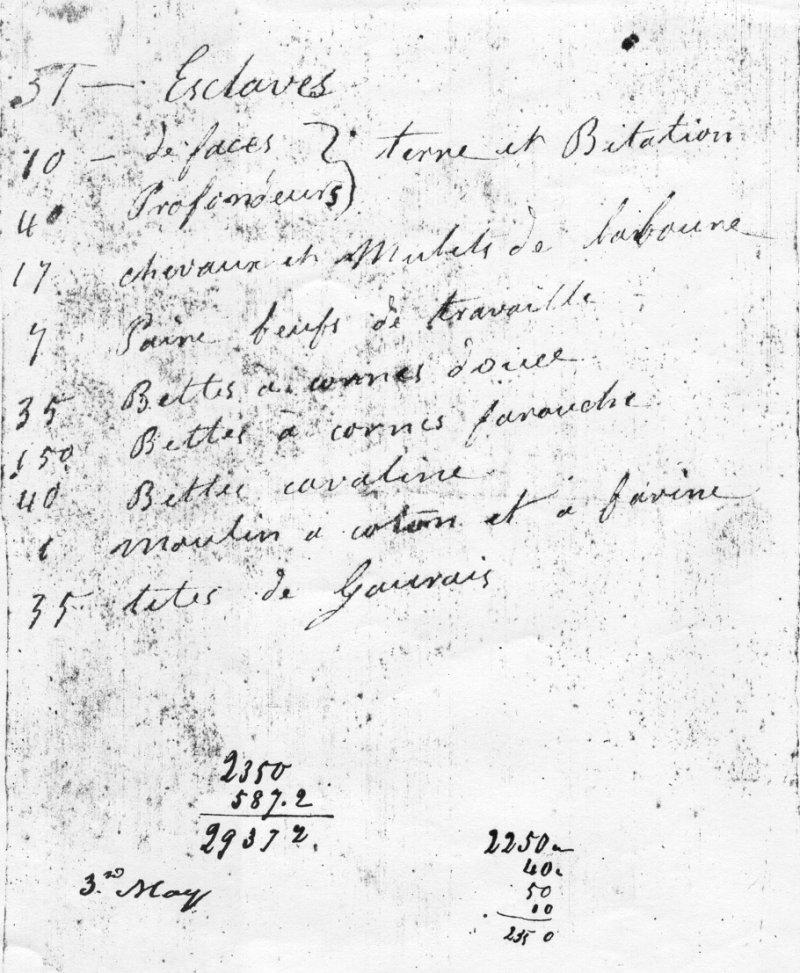 31 — Esclaves
10 — de faces } terre et Bitation
40 Profondeurs }
17 chevaux et Mulets de laboure
7 Paire beufs de travaille
35 Bettes a cornes douce
150 Bettes à cornes farouche
40 Bettes cavaline
1 Moulin a coton et a farine
35 tetes de
2350
587.2
2937 2.
3.rd May
2250
40
50
10
2350